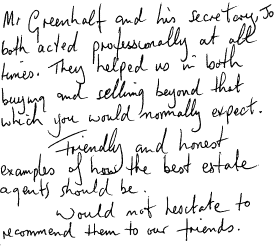 Mr Greenhalf and his secretary, Jo
both acted professionally at all
times. They helped us in both
buying and selling beyond that
which you would normally expect.
Friendly and honest
examples of how the best estate
agents should be.
Would not hesitate to
recommend them to our friends.